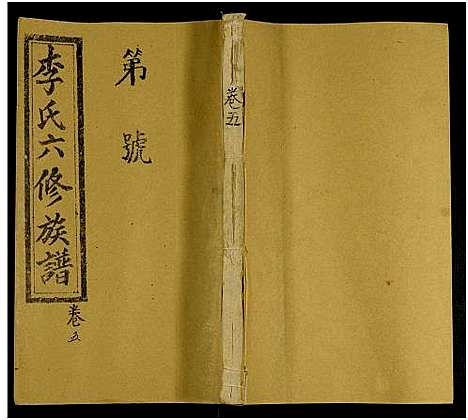 李氏六修族譜
卷五
第號
卷五